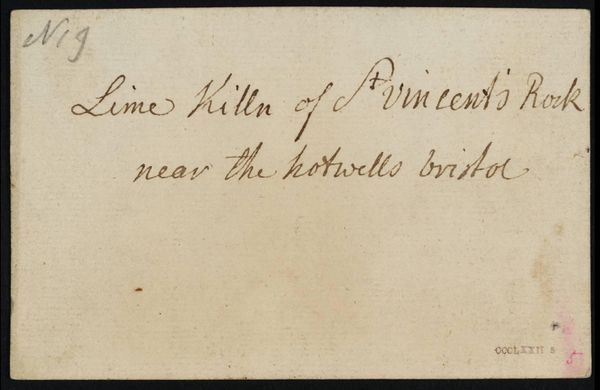 N 9
Lime Killn of St Vincent's Rock
near the hotwells bristol
CCCLXXII 5
5